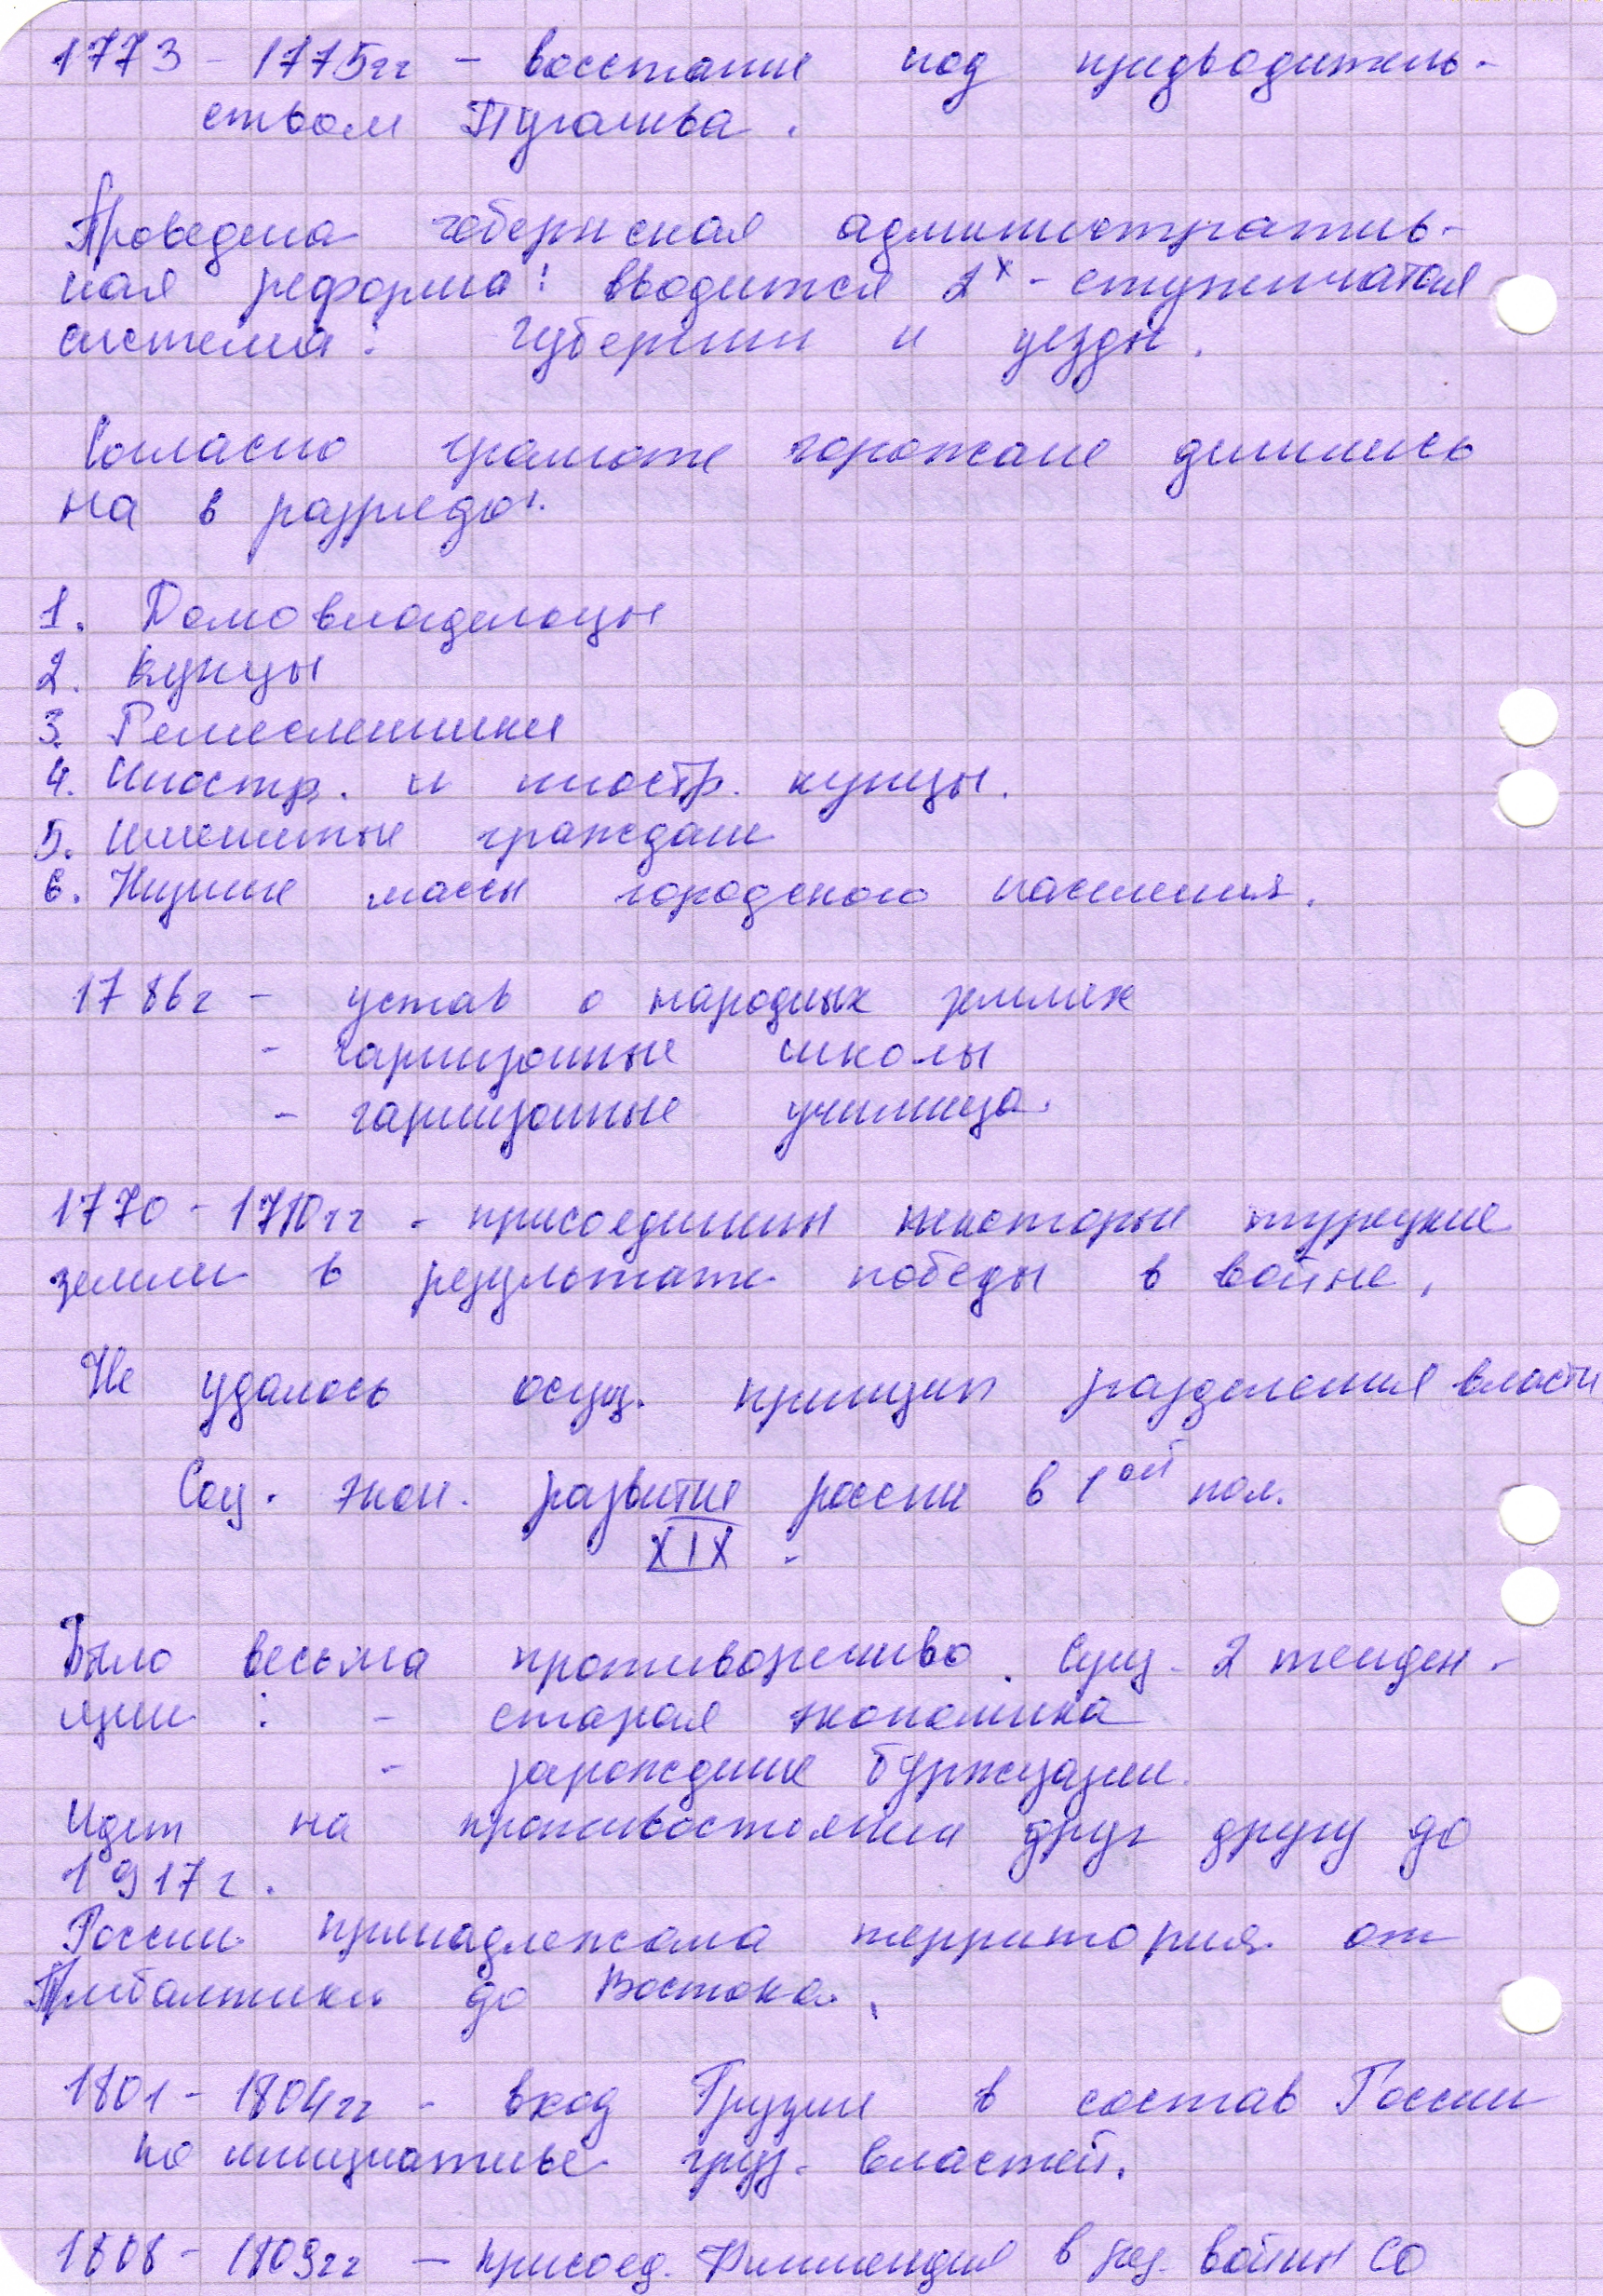 1773 - 1775гг - восстание под предводитель-
ством Пугачева.
Проведена губернская административ-
ная реформа: вводится 2х - ступенчатая
система: губернии и уезды.
Согласно грамоте горожане делились
на 6 разряды:
1. Домовладельцы
2. Купцы
3. Ремесленники
4. Иностр. и иностр. купцы.
5. Именитые граждане
6. Низшие массы городского населения.
1786г - устав о народных землях
- гарнизонные школы
- гарнизонные училища.
1770 - 1710гг - присоединены некоторые турецкие
земли в результате победы в войне.
Не удалось осущ. принцип разделения власти
Соц. экон. развитие россии в 1ой пол.
XIX.
Было весьма противоречиво. Сущ. 2 тенден-
ции: - старая экономика
- зарождение буржуазии.
Идет на противостоянии друг другу до
1917г.
России принадлежала территория от
Прибалтики до Востока.
1801 - 1804гг - вход Грузии в состав России
по инициативе груз. властей.
1808 - 1809гг - присоед. Финляндия в рез. войны со